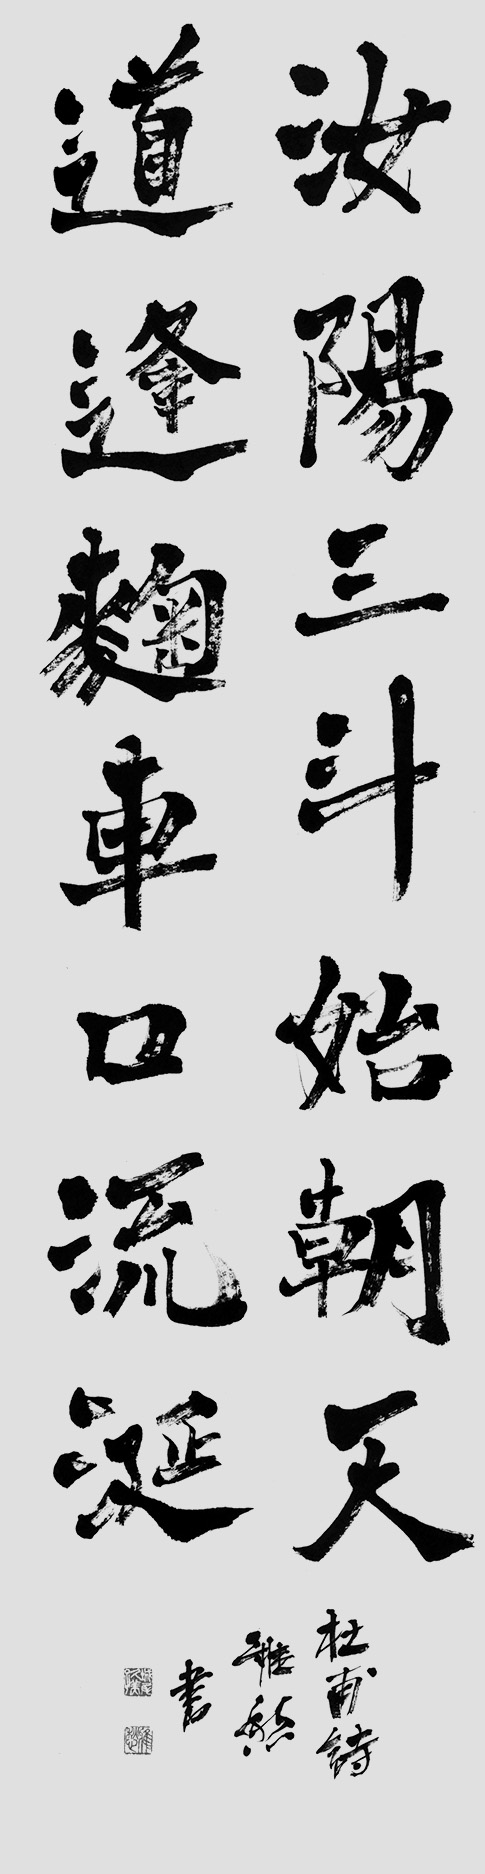 汝陽三斗始朝天
道逢麴車口流涎
杜甫詩
書